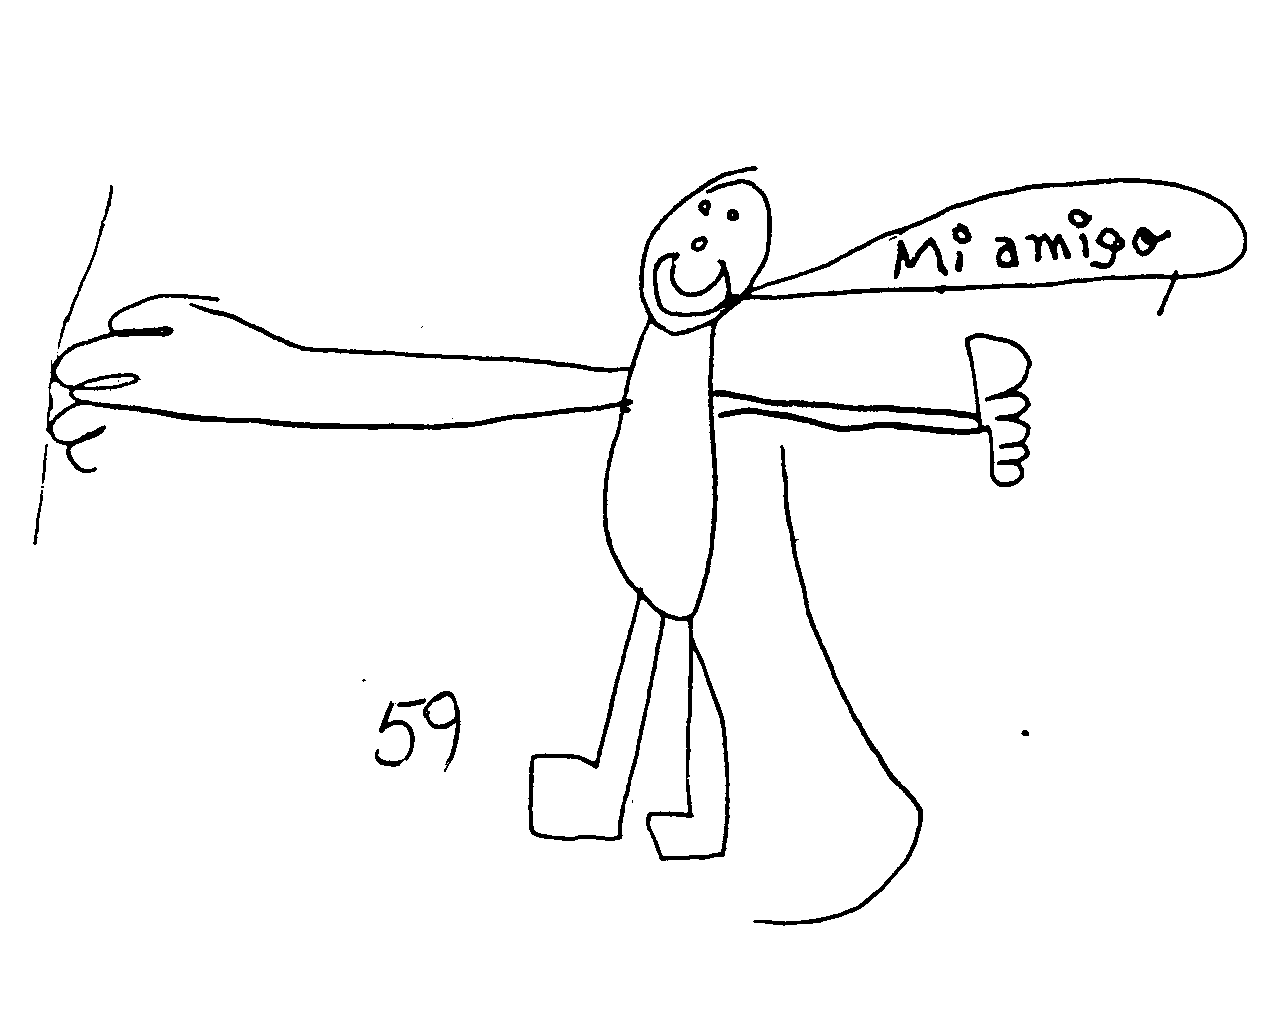 Mi amigo
59